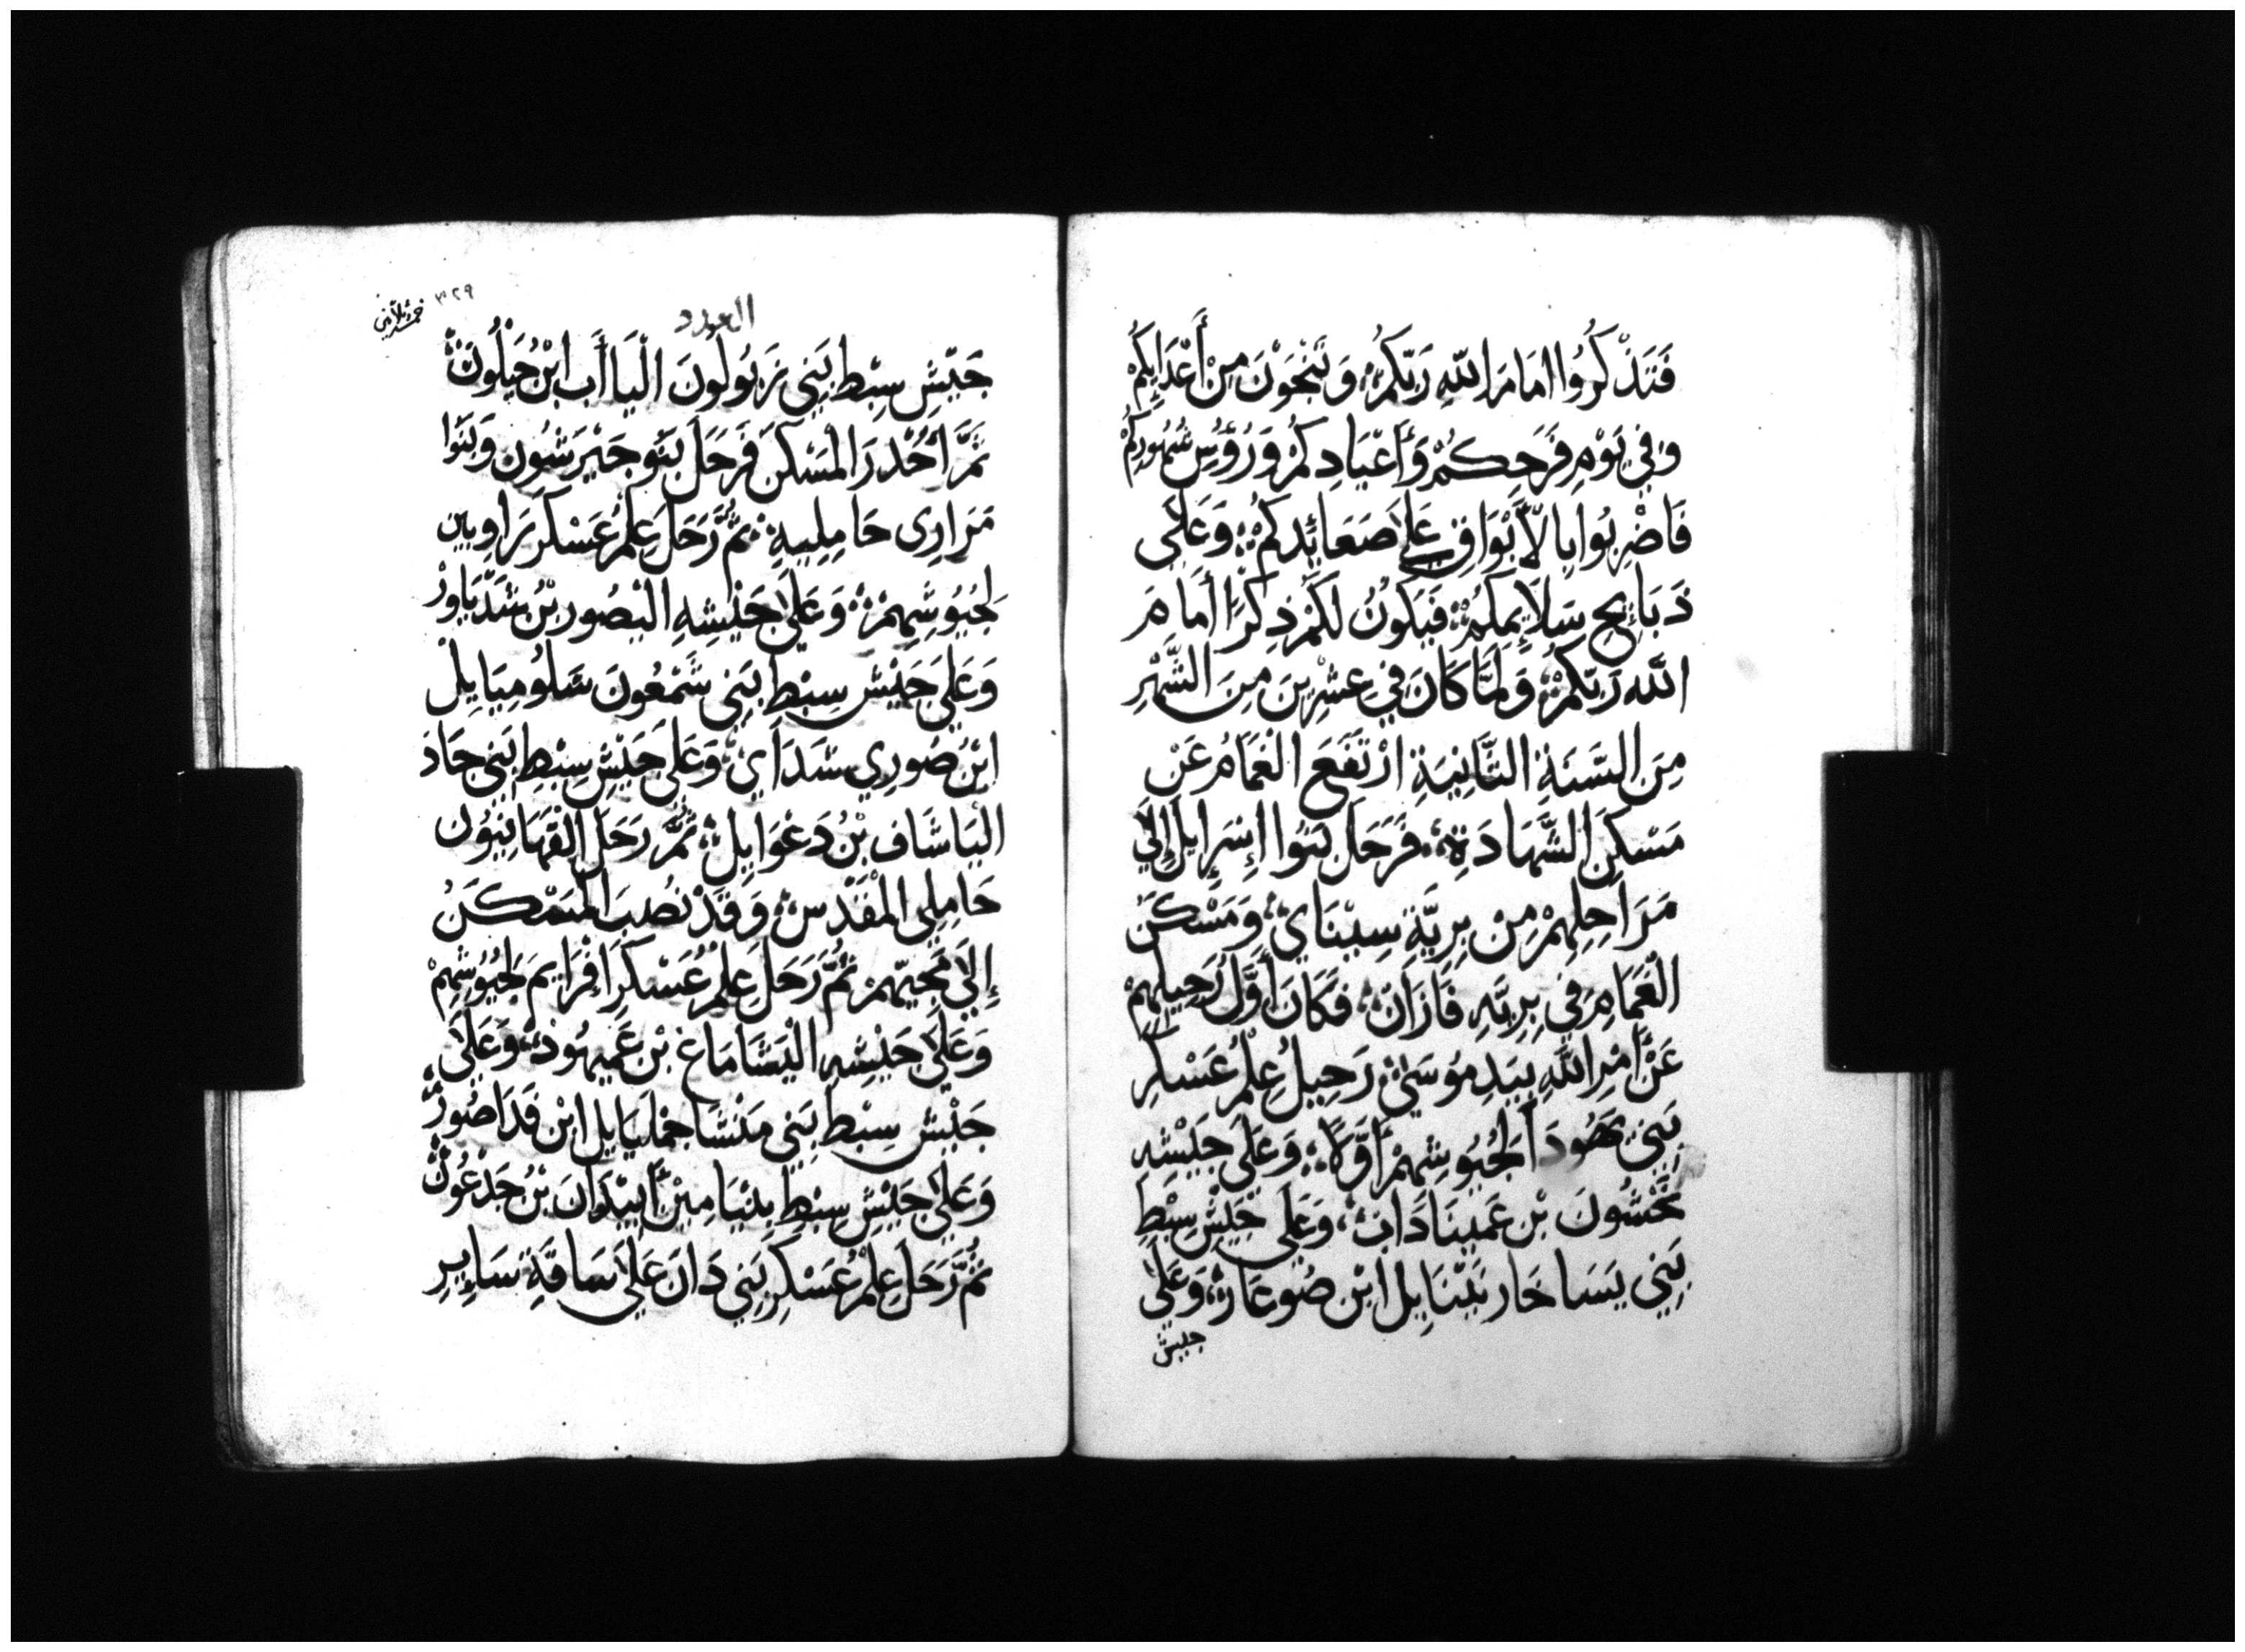 فَتَذْكُرُوا امَامَ اللهِ رَبِّكُمْ وَتَنْجَوْنَ مِنْ أَعْدَايِكُمْ
وَفِي يَوْمِ فَرَحِكُمْ وَأَعْيَادِكُمْ وَرُؤُسِ شُهُورِكُمْ
فَاضْرِبُوا بِالْأَبْوَاقِ عَلَى صَعَائِدِكُمْ وَعَلَى
ذَبَائِحِ سَلَايِمِكُمْ فَيَكُونُ لَكُمْ ذِكْرًا أَمَامَ
اللهِ رَبِّكُمْ وَلَمَّا كَانَ فِي عِشْرِينَ مِنَ الشَّهْرِ
مِنَ السَّنَةِ الثَّانِيَةِ ارْتَفَعَ الْغَمَامُ عَنْ
مَسْكَنِ الشَّهَادَةِ فَرَحَلَ بَنُوا إِسْرَايِلَ إِلَي
مَرَاحِلِهِمْ مِنْ بِرِيَّةِ سِيْنَايْ وَمَسْكَنَ
الْغَمَامِ فِي بِرِيَّهِ فَارَانْ فَكَانَ أَوَّلُ رَحِيلِهِمْ
عَنْ أَمْرِ اللَّهِ بِيَدِ مُوسَيْ رَحِيلُ عِلْمُ عَسْكَرِ
بَنِي يَهُودَا لِجُيُوشِهِمْ أَوَّلًا وَعَلَى جَيْشِهِ
نَحْشُونَ بْنِ عَمِينَادَابْ وَعَلَى جَيْشِ سِبْطِ
بَنِي يَسَاخَار نَتْنَايِل ابْن صُوعَارْ وَعَلَى
جيش
٣٢٩
العدد
جَيْشِ سِبْطِ بَنِي زَبُولُونَ الْيَاأَب ابْن حَيْلُونْ
ثُمَّ أُحْدِرَ الْمَسْكَنَ فَرَحَلَ بَنُو جَيْرَشُون وَبَنُوا
مَرَارِى حَامِلِيهِ ثُمَّ رَحَلَ عِلْمُ عَسْكَر رَاوبين
لِجُيُوشِهِمْ وَعَلَى جَيْشِهِ اليْصُور بْنُ شَدِّيَاورْ
وَعَلَي جَيْش سِبْطِ بَنِي شَمْعُونَ سَلُومِيَايِلْ
ابْنُ صُورِي شَدَايْ وَعَلَي جَيْشِ سِبْطِ بَنِي جَادَ
الْيَاشَاف بْنُ دَعْوَايِلْ ثُمَّ رَحَلَ القَهَانِيُون
حَامِلِى المَقْدِسْ وَقَدْ نُصِبَ الْمَسْكَنُ
إِلَي مَجِيّهِمْ ثُمَّ رَحَلَ عِلْمُ عَسْكَرِ افْرَايِمَ لِجُيُوشِهِمْ
وَعَلَى جَيْشِهِ الْيَشَامَاع بْن عَمِيهُودْ وَعَلَى
جَيْشِ سِبْطِ بَنِي مَنْشَا جمليَايِل ابْن فَدَاصُورْ
وَعَلَي جَيْشِ سِبْطِ بِنْيَامِين أَبِيْدَانَ بْنُ جَدْعُونْ
ثُمَّ رَحَلَ عِلْمُ عَسْكَرِ بَنِي دَانَ عَلَي سَاقَةِ سَايِرِ